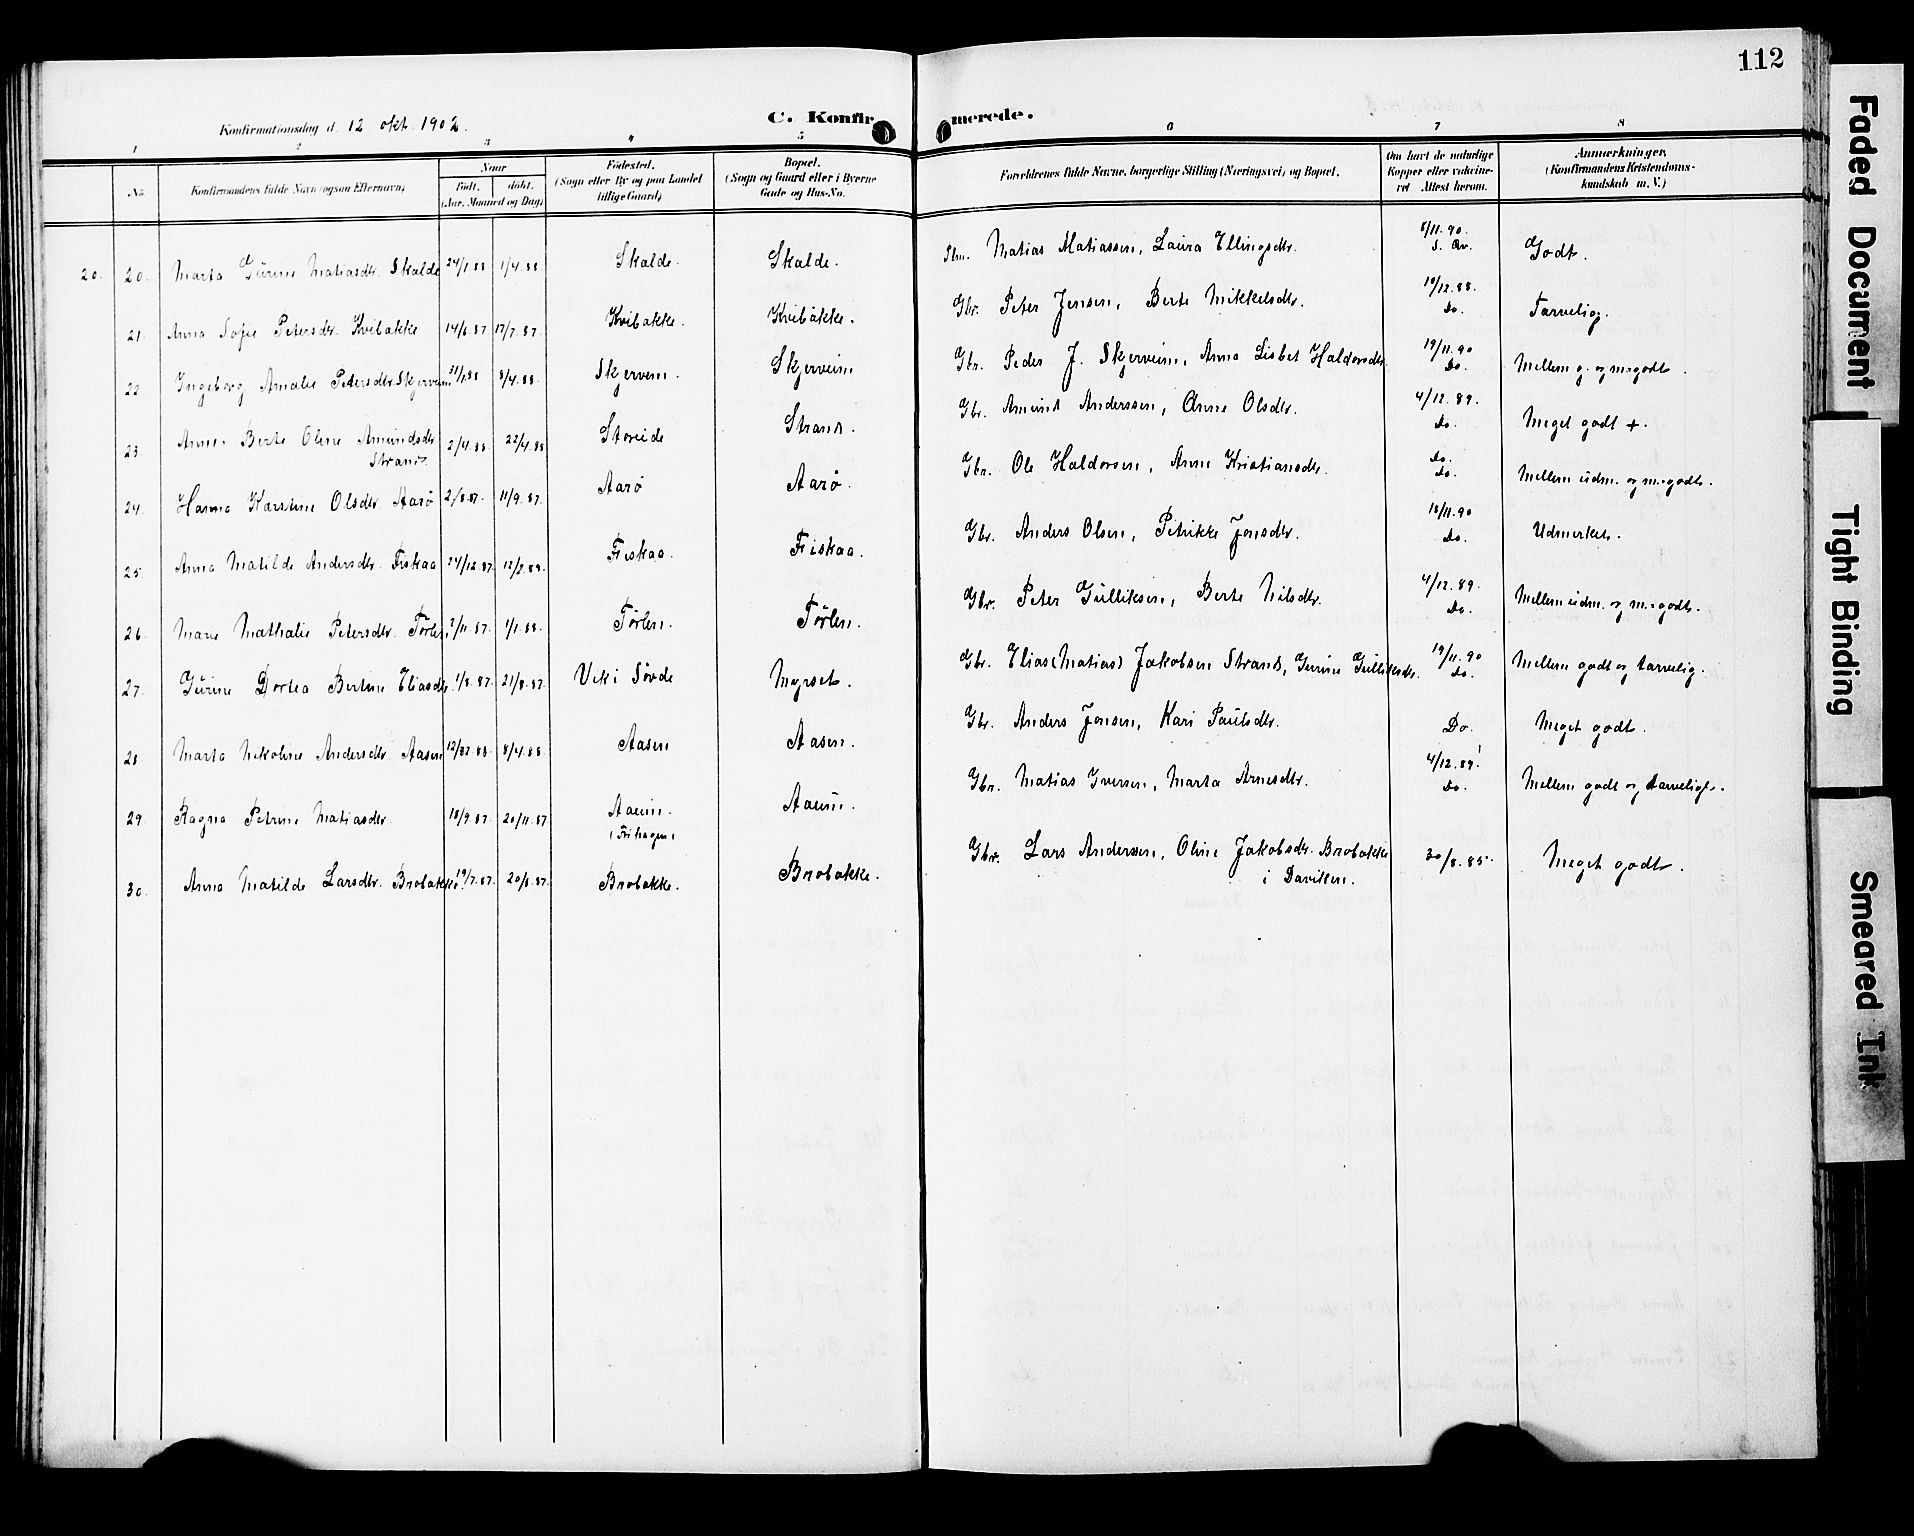 112
Konfirmationsdag d. 12 okt. 1902.
C. Konfirmerede.
1 2 3 4 5 6 7 8
No. Konfirmandens fulde Navn (ogsaa Efternavn) Naar født. døbt. (Aar, Maaned og Dag) Fødested. (Sogn eller By og paa Landet tillige Gaard) Bopæl. (Sogn og Gaard eller i Byerne Gade og Hus-No. Forældrenes fulde Navne, borgerlige Stilling (Næringsvei) og Bopæl. Om havt de naturlige Kopper eller vakcineret Attest herom. Anmærkninger. (Konfirmandens Kristendomskundskab m. V.)
20. 20. Marta Gurine Matiasdtr. Skalde 24/1.88 1/4.88. Skalde. Skalde. Stm. Matias Matiassen, Laura Ellingsdtr. 5/11.90. Godt.
21. Anna Sofie Petersdtr. Kvibakke 14/6.87. 17/7.87. Kvibakke. Kvibakke. Gbr. Peter Jensen, Berte Mikkelsdtr. 19/12.88. Do. Tarvelig.
22. Ingeborg Amalie Petersdtr. Skjerveim 31/1.88 8/4.88. Skjerveim. Skjerveim Gbr. Peder J. Skjerveim, Anna Lisbet Haldorsdtr. 19/11.90 Do. Mellem g. og m. godt.
23. Anne Berte Oline Amundsdtr. 2/4.88 22/4.88 Storeide Strand. Gbr. Amund Anderssen, Anne Olsdtr. 4/12.89. Do. Meget godt +.
Strand.
24. Hanna Karstine Olsdtr. Aarø 2/8.87. 11/9.87. Aarø Aarø. Gbr. Ole Haldorsen, Anne Kristiansdtr. Do. Do. Mellem udm. og m. godt.
25. Anna Matilde Andersdtr. Fiskaa 14/12.87. Fiskaa. Fiskaa. Gbr. Anders Olsen, Petrikke Jonsdtr. 18/11.90 Do. Udmerket.
26. Marie Mathalie Petersdtr. Tørlen 2/11.87. 1/1.88. Tørlen. Tørlen. Gbr. Peter Gulliksen, Berte Nilsdtr. 4/12.89. Do. Mellem udm. og m. godt.
27. Gurine Dortea Bertine Eliasdtr. 1/8.87. 21/8.87. Vik i Søvde Myrset. Gbr. Elias (Matias) Jakobsen Strand, Gurine Gulliksdtr. 19/11.90 Do. Mellem godt og tarvelig.
28. Marta Nikoline Andersdtr. Aasen 8/4.88. Aasen Aasen. Gbr. Anders Jonsen, Kari Paulsdtr. Do. Meget godt.
29. Ragna Petrine Matiasdtr. 18/9.87. 20/11.87 Aaeim. Aaeim. Gbr. Matias Iversen, Marta Arnesdtr. 4/12.89. Do. Mellem godt og tarveligt.
30. Anna Matilde Larsdtr. Brobakke. 19/7.87. 20/8.87. Brobakke. Brobakke. Gbr. Lars Anderssen, Oline Jakobsdtr. Brobakke 30/8.85. Meget godt.
i Daviken.
Faded Document
Tight Binding
Smeared Ink